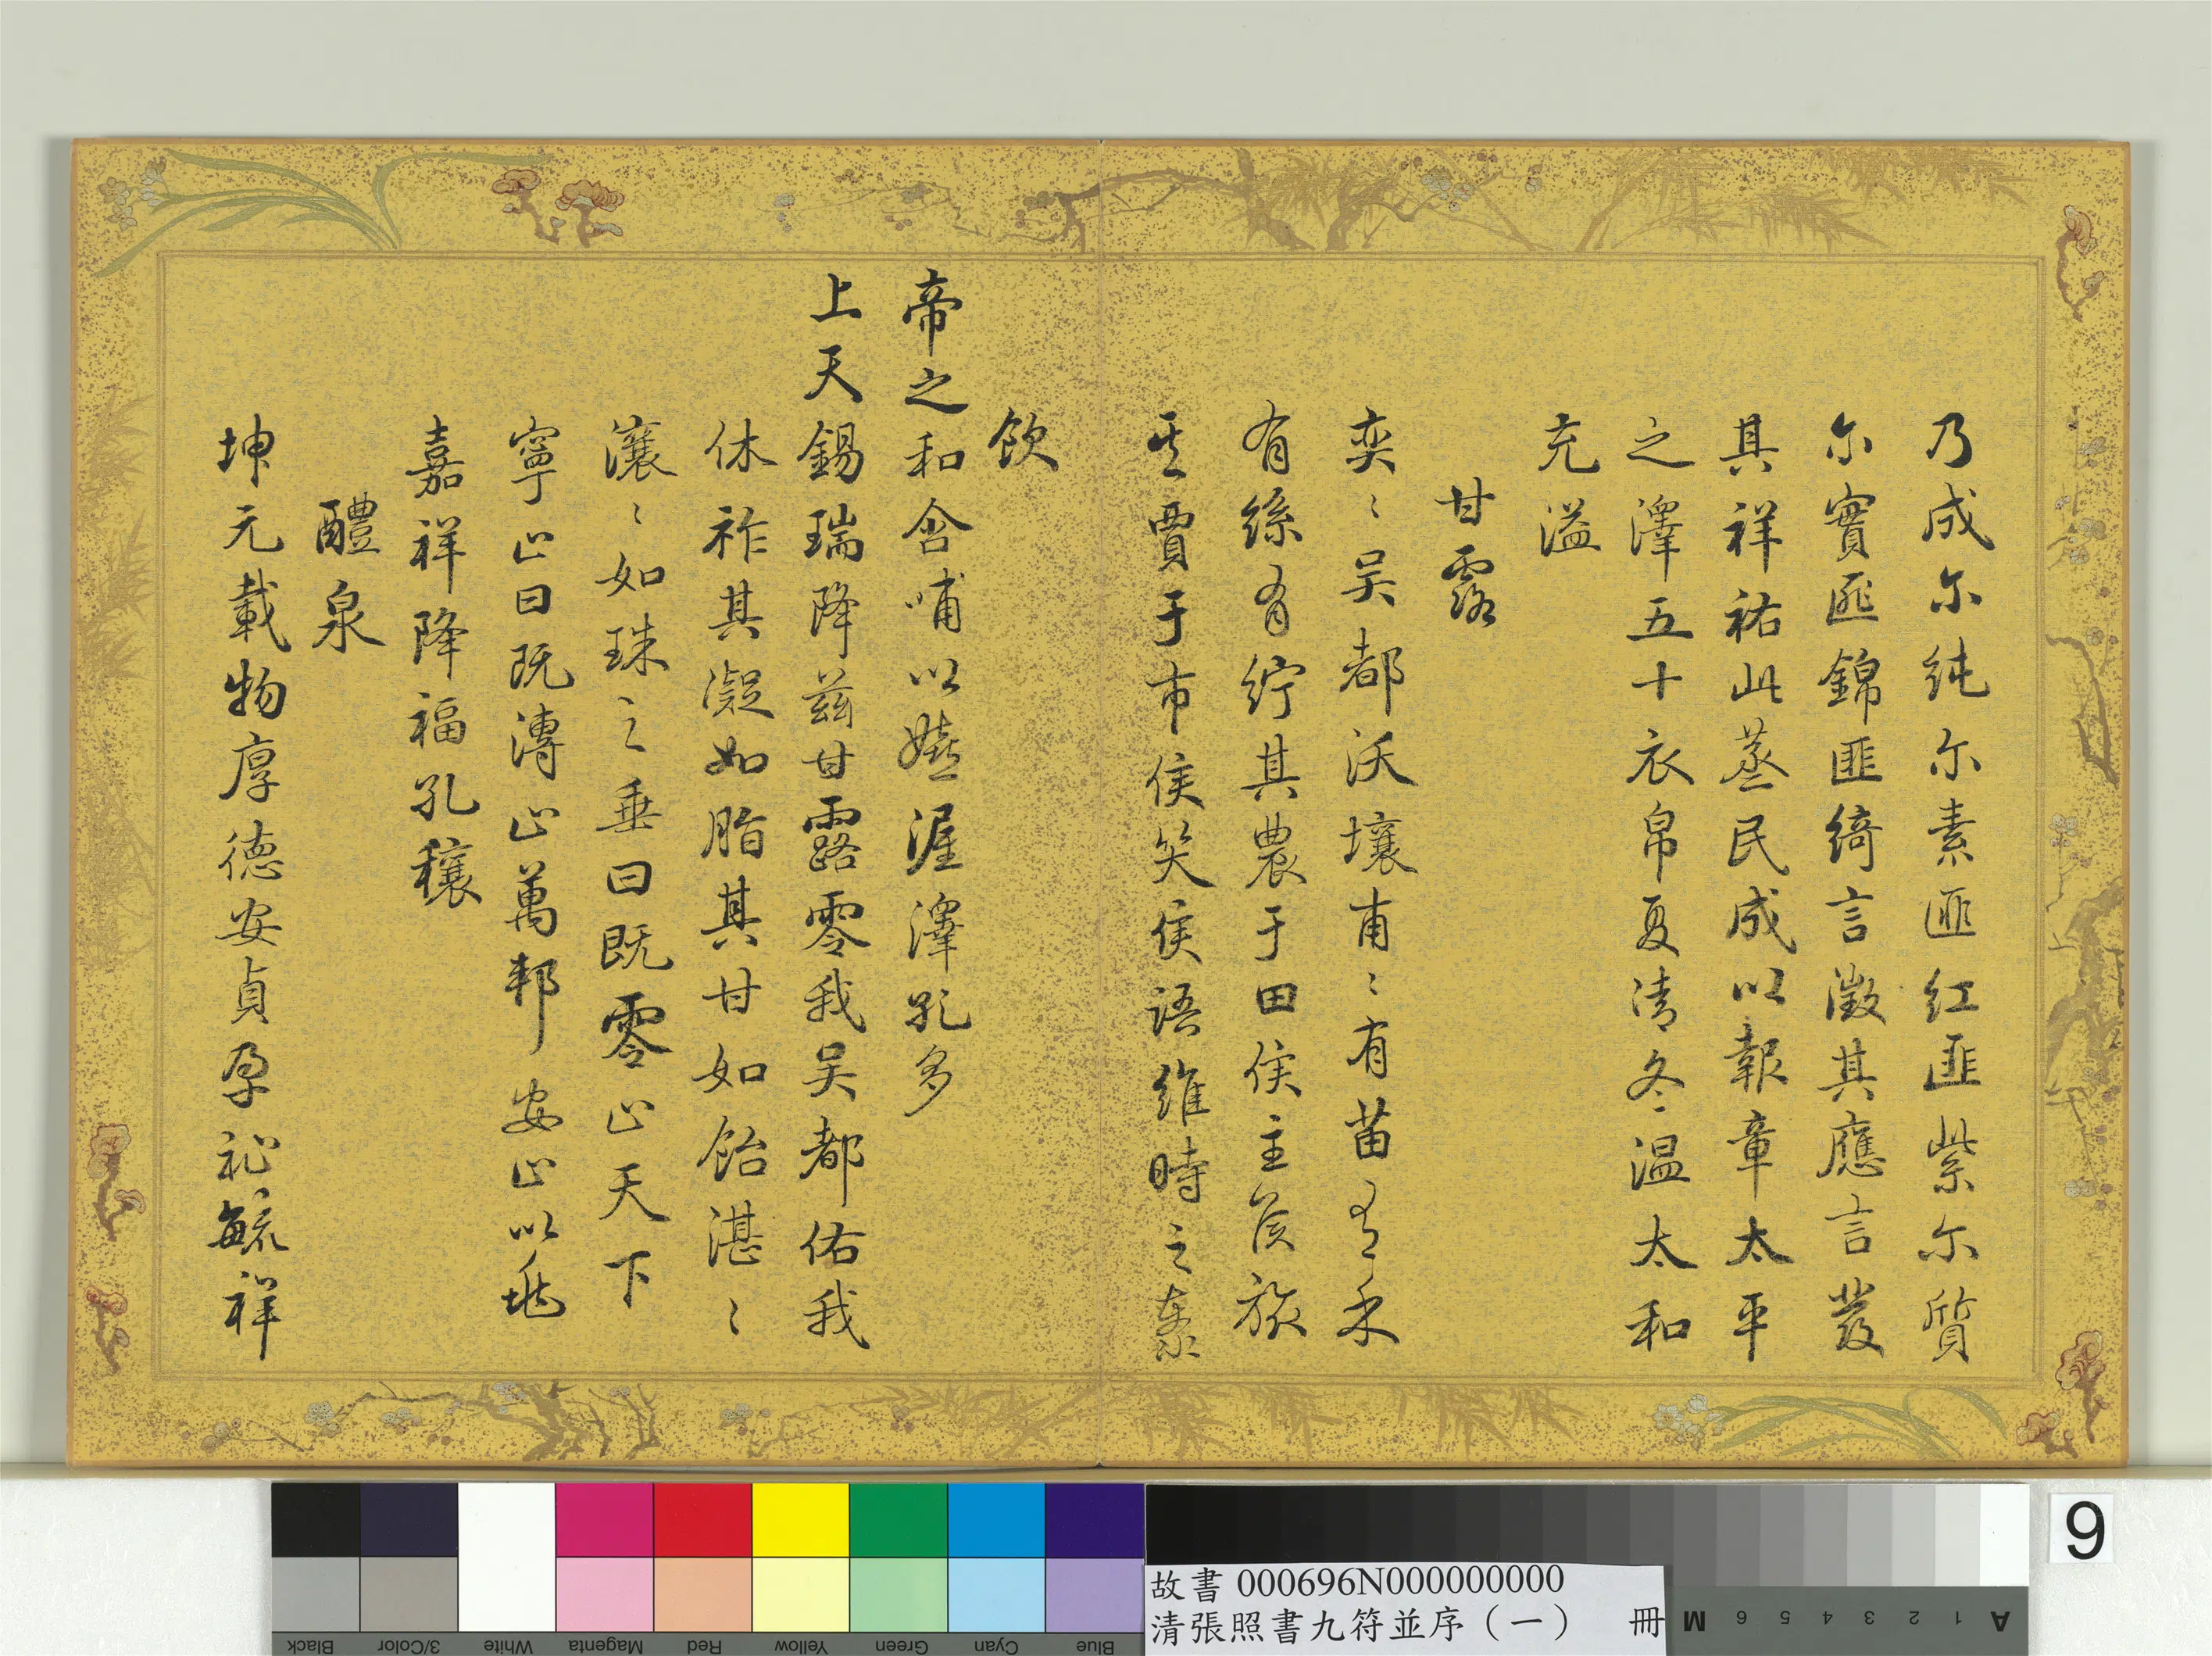 乃成尔纯尔素匪红匪紫尔質
尔實匪錦匪綺言徵其應言發
其祥祐此蒸民成以報章太平
之澤五十衣帛夏清冬温太和
充溢
甘露
奕〻吴都沃壤甫〻有苗有禾
有絲有紵其農于田侯主侯旅
其賈于市侯笑侯語維時之泰
飲
帝之和含哺以嬉渥澤孔多
上天錫瑞降兹甘露零我吴都佑我
休祚其凝如脂其甘如飴湛〻
瀼〻如珠之垂曰既零止天下
寧止曰既漙止萬邦安止以
嘉祥降福孔穰
醴泉
坤元載物厚德安貞孕祉毓祥
故書 000696N000000000
清張照書九符並序（一） 冊
9
Black 3/Color White Magenta Red Yellow Green Cyan Blue
A 1 2 3 4 5 6 M